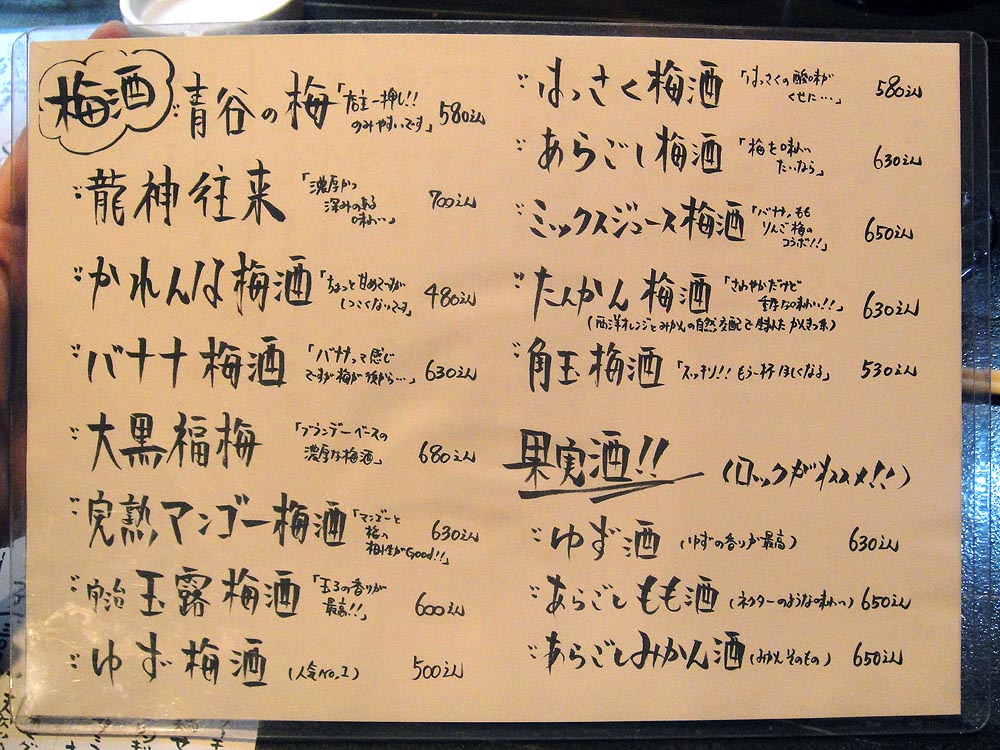 梅酒
青谷の梅「店主一押し!!のみやすいです」580えん
龍神往来「濃厚かつ深みのある味わい」700えん
かれんな梅酒「ちょっと甘めですがしつこくないです」480えん
バナナ梅酒「バナナって感じですが梅が後から…」630えん
大黒福梅「ブランデーベースの濃厚な梅酒」680えん
完熟マンゴー梅酒「マンゴーと梅の相性がGood!!」630えん
宇治玉露梅酒「玉露の香りが最高!!」600えん
ゆず梅酒(人気No.1)500えん
はっさく梅酒「はっさくの酸味がくせに…」580えん
あらごし梅酒「梅を味わいたいなら」630えん
ミックスジュース梅酒「バナナ、ももりんご梅のコラボ!!」650えん
たんかん梅酒「さわやかだけど重厚な味わい!!」630えん
(西洋オレンジとみかんの自然交配で生まれたかんきつ系)
角玉梅酒「スッキリ!!もう一杯ほしくなる」530えん
果実酒!!(ロックがオススメ!!)
ゆず酒(ゆずの香りが最高)630えん
あらごしもも酒(ネクターのような味わい)650えん
あらごしみかん酒(みかんそのもの)650えん